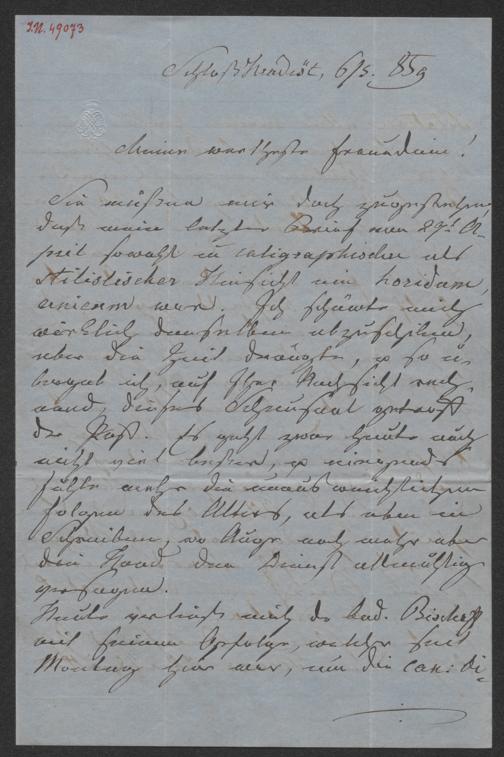 I.N. 49073
Schloß Hradist, 6/5. 859
Meine wertheste Freundinn!
Sie müßen mir doch zugestehen,
daß mein letzter Brief vom 29t. A-
pril sowohl in caligraphischer als
stilistischer Hinsicht ein horidum,
unicum war. Ich schämte mich
wirklich denselben abzuschiken,
aber die Zeit drängte, so ü-
bergab ich, auf Ihre Nachsicht rech-
nend, dieses Scheusaal getrost
der Post. Es geht zwar heute auch
nicht viel besser, nirgends
fühle mehr die unausweichlichen
Folgen des Alters, als eben im
Schreiben, wo Auge noch mehr aber
die Hand den Dienst allmählig
versagen.
Heute verließ mich der Bischoff
mit seinem Gefolge, welcher seit
Montag hier war, um die can: Vi-